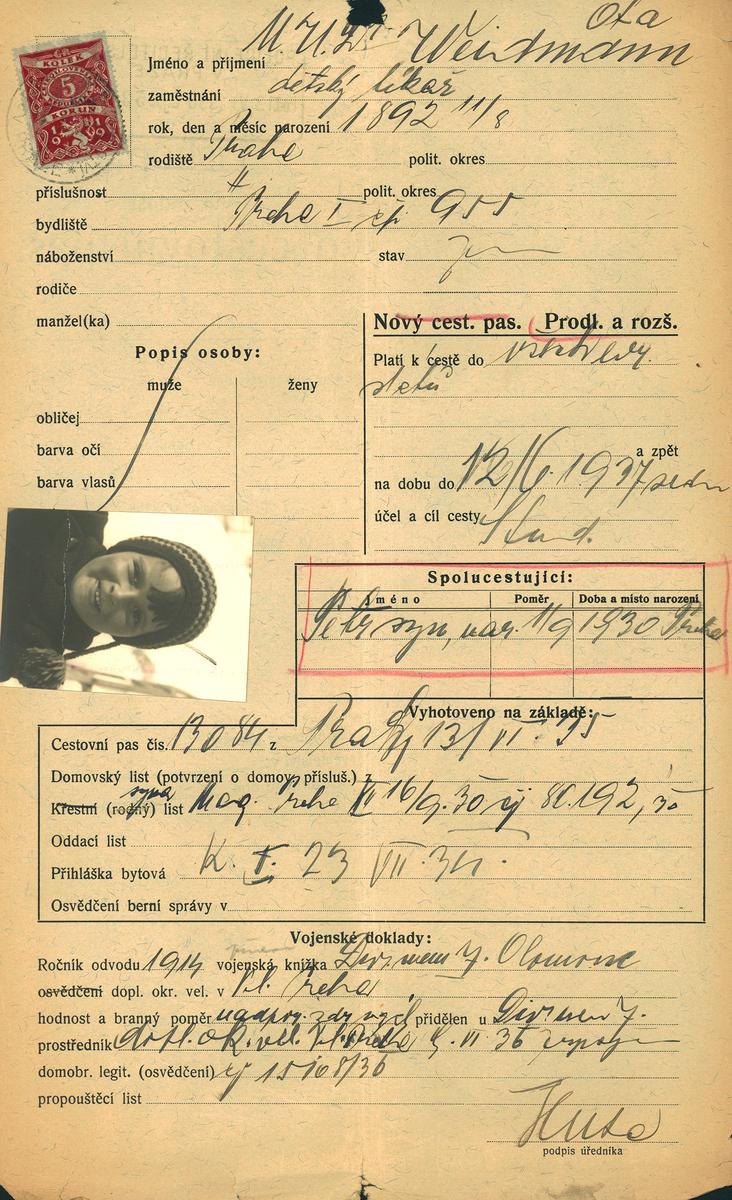 KOLEK
5
KORUN
1919
Ota
Jméno a příjmení M U Dr Weidmann
zaměstnání dětský lékař
rok, den a měsíc narození 1892 11/8
rodiště Praha polit. okres
příslušnost " polit. okres
bydliště Praha I čp. 955
náboženství stav
rodiče
manžel(ka)
Nový cest. pas. Prodl. a rozš.
Popis osoby:
muže ženy
obličej
barva očí
barva vlasů
Platí k cestě do
států
a zpět
na dobu do 12/6. 1937
účel a cíl cesty
Spolucestující:
Jméno Poměr Doba a místo narození
Petr syn, nar. 11/9 1930 Praha
Vyhotoveno na základě:
Cestovní pas čís. 13084 z Praha 13/VI. 35
Domovský list (potvrzení o domov. přísluš.) z
syna
Křestní (rodný) list Mag. Praha 16/9. 30 čj 80.192/30
Oddací list
Přihláška bytová K. I. 23 VII. 34.
Osvědčení berní správy v
Vojenské doklady:
Ročník odvodu 1914 vojenská knížka Div. nem 7. Olomouc
osvědčení dopl. okr. vel. v Praha
hodnost a branný poměr přidělen u Div. nem 7.
prostředník dopl. ok. vel. Praha VI 36
domobr. legit. (osvědčení) čj 15168/36
propouštěcí list
podpis úředníka